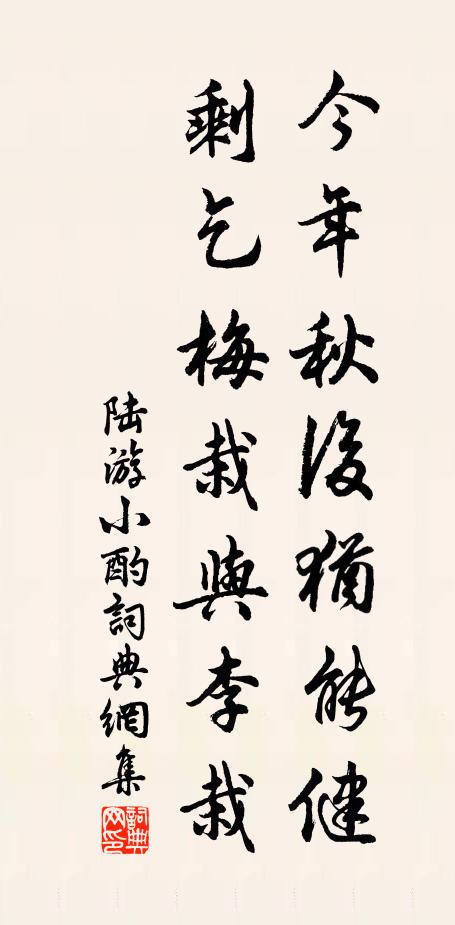 今年秋後猶能健
剩乞梅栽與李栽
陆游小酌詞典網集
詞典網印